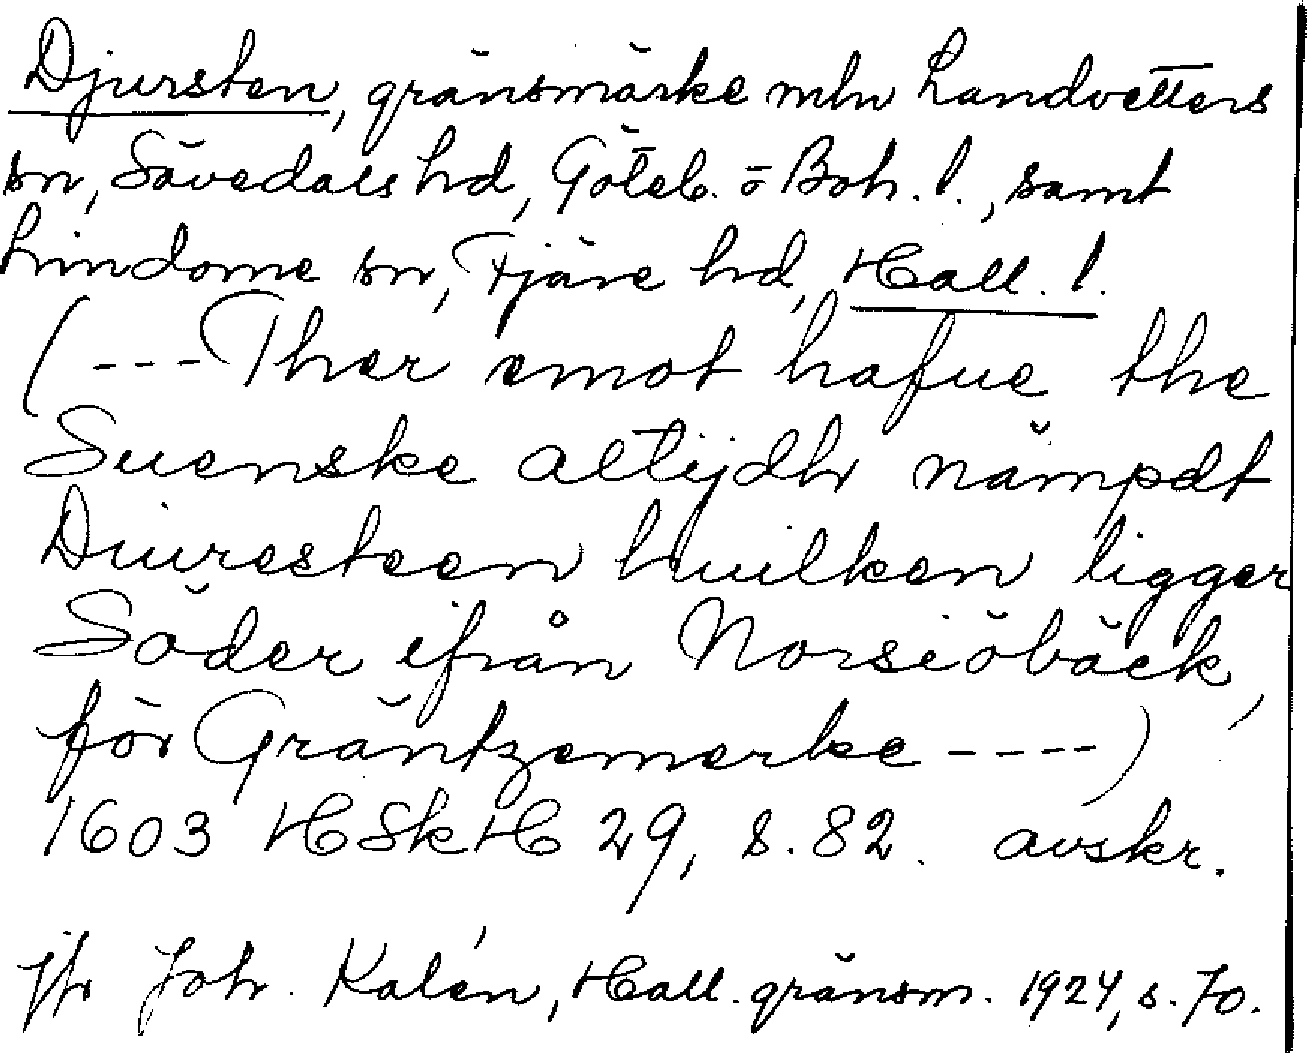 Djursten, gränsmärke mln Landvetters
sn, Sävedals hd, Göteb. o Boh. l., samt
Lindome sn, Fjäre hd, Hall. l.
(---Ther emot hafue the
Suenske altijdh nämpdt
Diuresteen huilken ligger
Söder ifrån Norsiöbäck,
för Gräntzemerke ----)
1603 HSkH 29, s. 82. avskr.
jfr Joh. Kalén, Hall. gränsm. 1924, s. 70.